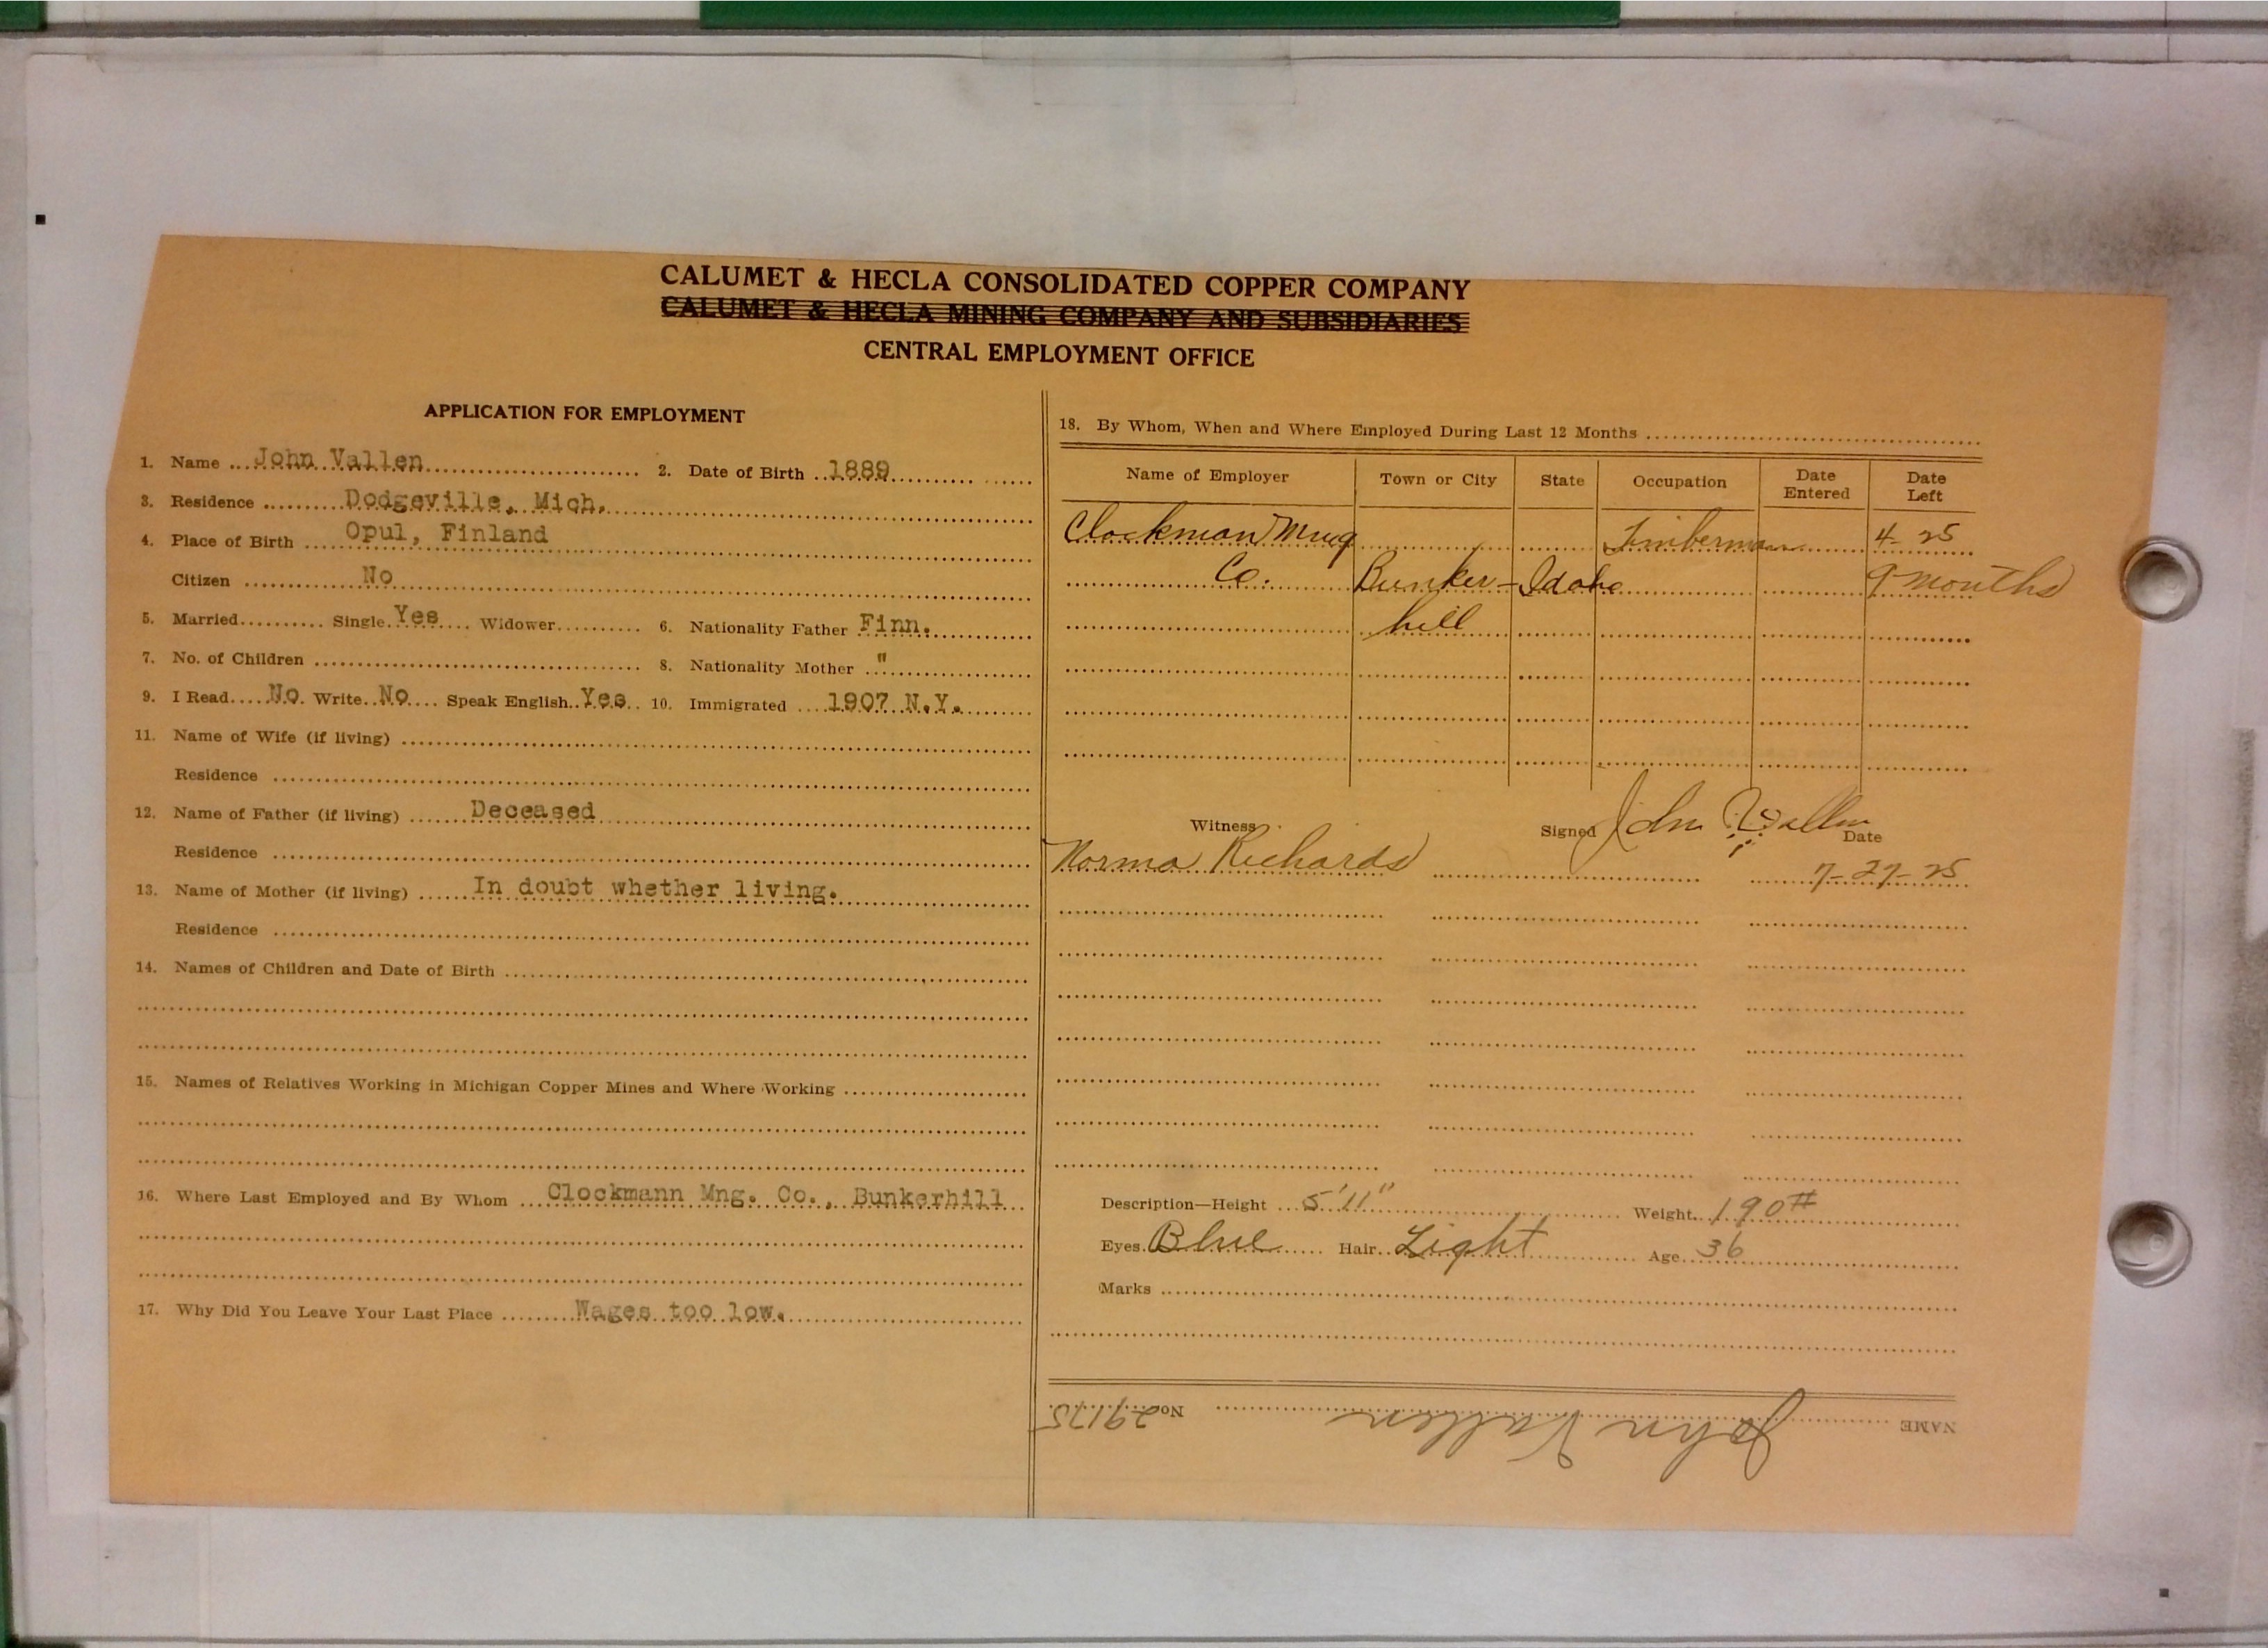 CALUMET & HECLA CONSOLIDATED COPPER COMPANY
CALUMET & HECLA MINING COMPANY AND SUBSIDIARIES
CENTRAL EMPLOYMENT OFFICE
APPLICATION FOR EMPLOYMENT
1. Name John Vallen 2. Date of Birth 1889
3. Residence Dodgeville, Mich.
4. Place of Birth Opul, Finland
Citizen No
5. Married Single Yes Widower 6. Nationality Father Finn.
7. No. of Children 8. Nationality Mother "
9. I Read No Write No Speak English Yes 10. Immigrated 1907 N.Y.
11. Name of Wife (if living)
Residence
12. Name of Father (if living) Deceased
Residence
13. Name of Mother (if living) In doubt whether living.
Residence
14. Names of Children and Date of Birth
15. Names of Relatives Working in Michigan Copper Mines and Where Working
16. Where Last Employed and By Whom Clockmann Mng. Co., Bunkerhill
17. Why Did You Leave Your Last Place Wages too low.
18. By Whom, When and Where Employed During Last 12 Months
Name of Employer Town or City State Occupation Date Entered Date Left
Clockman Mng Timberman 4-25
Co. Bunker- Idaho 9 months
hill
Witness Signed John Vallen Date
Norma Richards 7-27-25
Description—Height 5'11" Weight 190#
Eyes Blue Hair Light Age 36
Marks
NAME John Vallen No. 29175